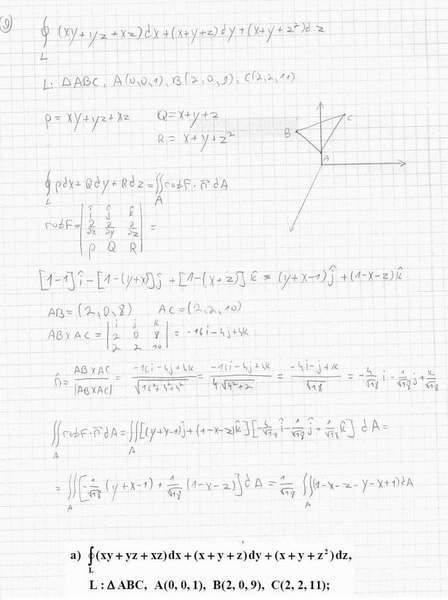 9) ∮_L (xy+yz+xz)dx+(x+y+z)dy+(x+y+z²)dz
L: ΔABC, A(0,0,1), B(2,0,9), C(2,2,11)
P = xy+yz+xz Q = x+y+z
R = x+y+z²
B C
A
∮_L Pdx+Qdy+Rdz = ∬_A rotF·n̄ dA
rotF = | î ĵ k̂ | =
| ∂/∂x ∂/∂y ∂/∂z |
| P Q R |
[1-1]î - [1-(y+x)]ĵ + [1-(x+z)]k̂ = (y+x-1)ĵ + (1-x-z)k̂
AB = (2,0,8) AC = (2,2,10)
AB×AC = | i j k |
| 2 0 8 | = -16i-4j+4k
| 2 2 10 |
n̂ = AB×AC/|AB×AC| = (-16i-4j+4k)/√(16²+4²+4²) = (-16i-4j+4k)/(4√(4²+2)) = (-4i-j+k)/√18 = -4/√18 i - 1/√18 j + 1/√18 k
∬_A rotF·n̄ dA = ∬_A [(y+x-1)ĵ+(1-x-z)k̂][-4/√18 î - 1/√18 ĵ + 1/√18 k̂] dA =
= ∬_A [-1/√18 (y+x-1) + 1/√18 (1-x-z)] dA = 1/√18 ∬_A (1-x-z-y-x+1)dA
a) ∮_L (xy + yz + xz) dx + (x + y + z) dy + (x + y + z²) dz,
L : Δ ABC, A(0, 0, 1), B(2, 0, 9), C(2, 2, 11);